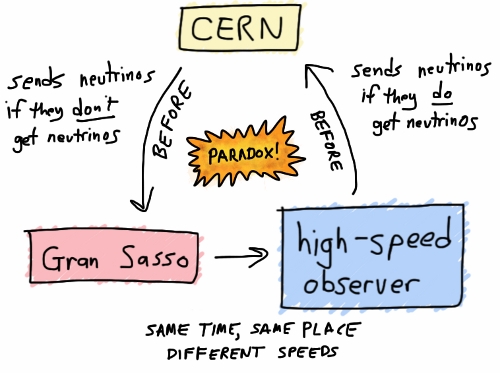 CERN
sends neutrinos
if they don't
get neutrinos
BEFORE
PARADOX!
BEFORE
sends neutrinos
if they do
get neutrinos
Gran Sasso
high-speed
observer
SAME TIME, SAME PLACE
DIFFERENT SPEEDS